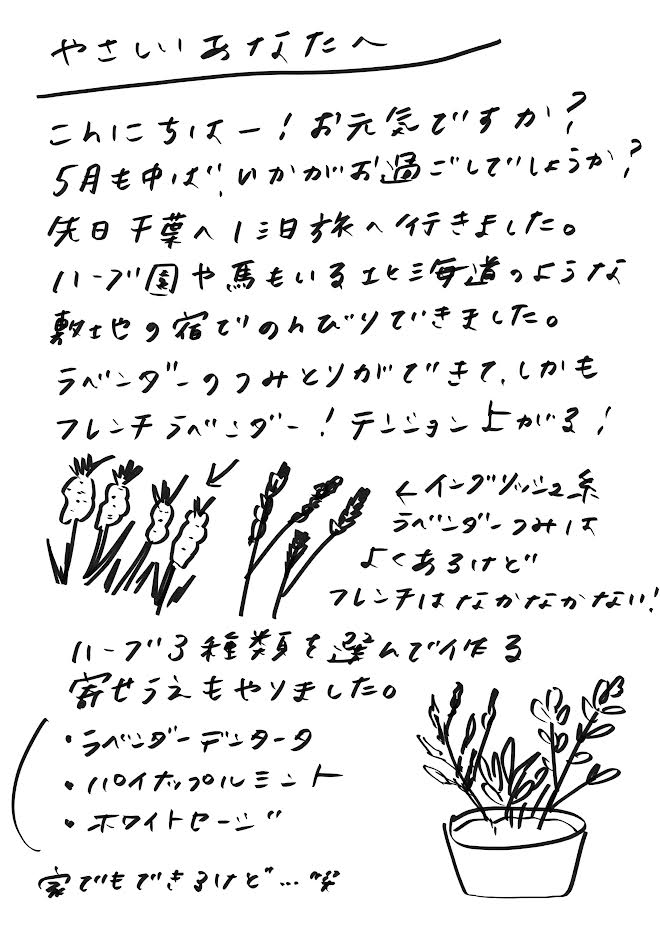 やさしいあなたへ
こんにちはー!お元気ですか?
5月も中ば、いかがお過ごしでしょうか?
先日千葉へ1泊旅へ行きました。
ハーブ園や馬もいる北海道のような
敷地の宿でのんびりできました。
ラベンダーのつみとりができて、しかも
フレンチラベンダー!テンション上がる!
←イングリッシュ系
ラベンダーつみは
よくあるけど
フレンチはなかなかない!
ハーブ3種類を選んで作る
寄せうえもやりました。
・ラベンダーデンタータ
・パイナップルミント
・ホワイトセージ
家でもできるけど…笑